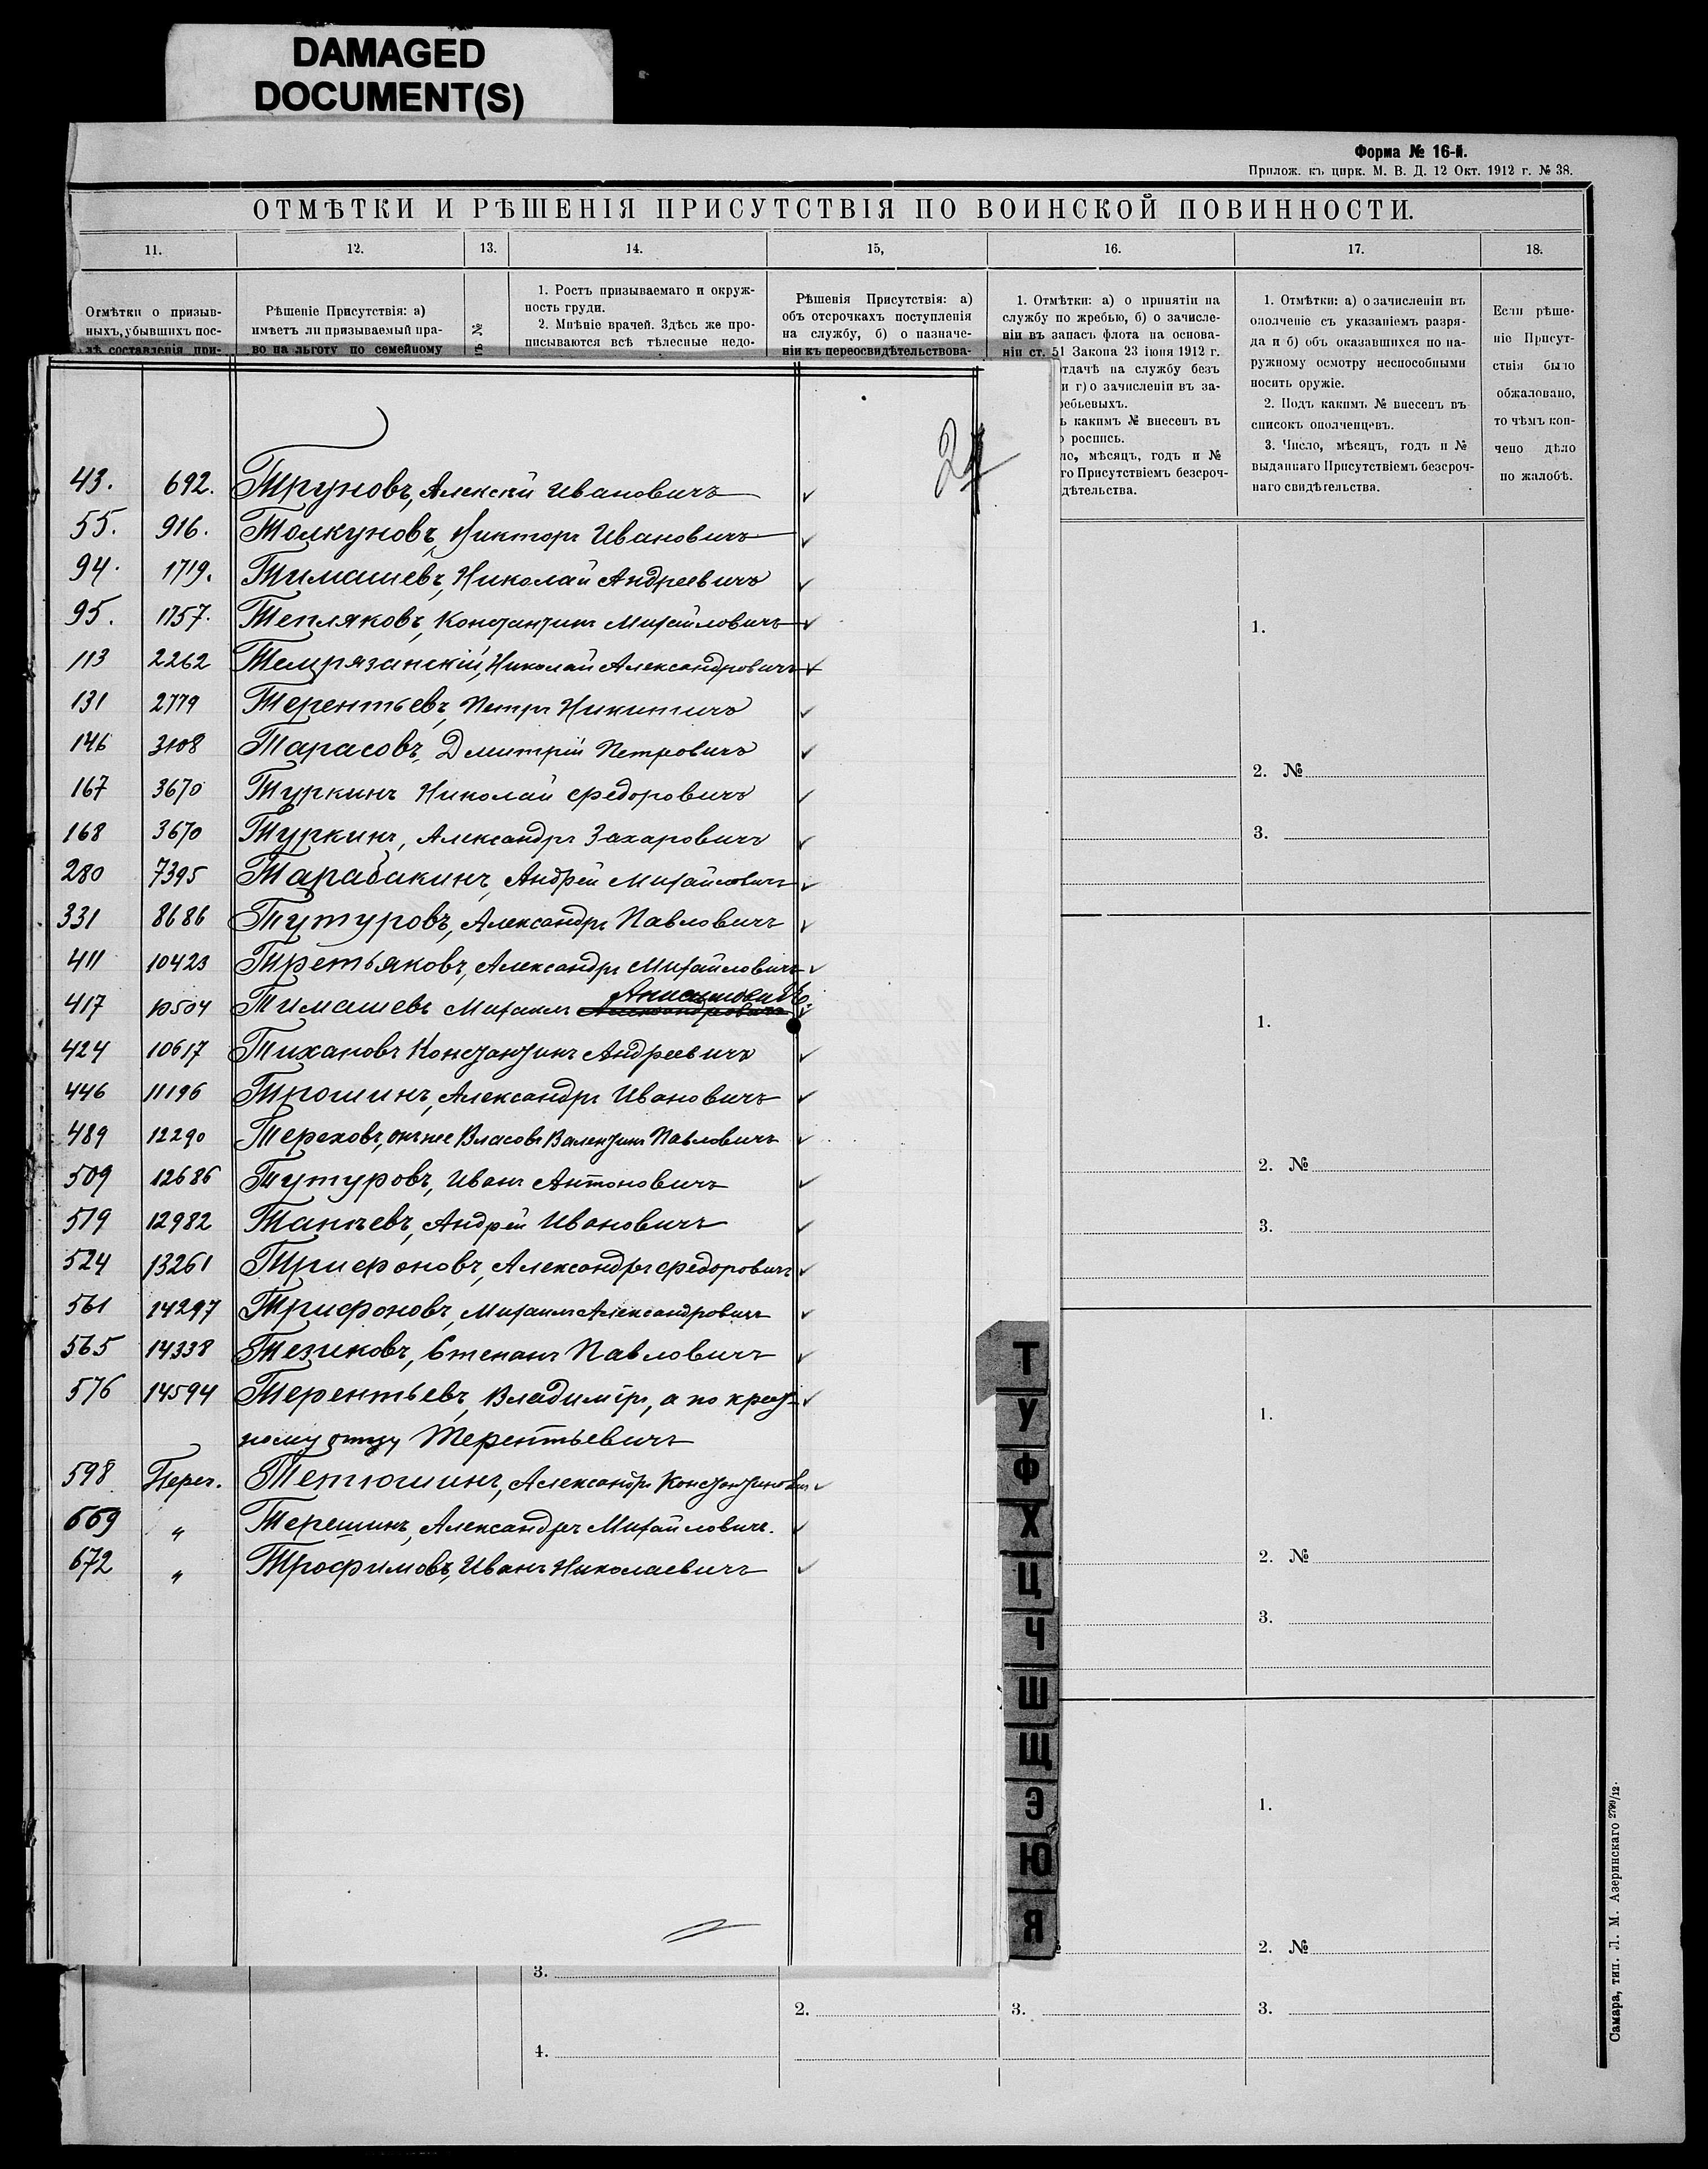 DAMAGED
DOCUMENT(S)
Форма № 16-й.
Прилож. къ цирк. М. В. Д. 12 Окт. 1912 г. № 38.
ОТМѢТКИ И РѢШЕНІЯ ПРИСУТСТВІЯ ПО ВОИНСКОЙ ПОВИННОСТИ.
11. 12. 13. 14. 15, 16. 17. 18.
Отмѣтки о призыв-
ныхъ, убывшихъ пос-
лѣ составленія при-
Рѣшеніе Присутствія: а)
имѣетъ ли призываемый пра-
во на льготу по семейному
№
1. Ростъ призываемаго и окруж-
ность груди.
2. Мнѣніе врачей. Здѣсь же про-
писываются всѣ тѣлесные недо-
Рѣшенія Присутствія: а)
объ отсрочкахъ поступленія
на службу, б) о назначе-
ніи къ переосвидѣтельствова-
1. Отмѣтки: а) о принятіи на
службу по жребью, б) о зачисле-
ніи въ запасъ флота на основа-
ніи ст. 51 Закона 23 іюня 1912 г.
отдачѣ на службу безъ
и г) о зачисленіи въ за-
ребьевыхъ.
ъ какимъ № внесенъ въ
роспись.
ло, мѣсяцъ, годъ и №
го Присутствіемъ безсроч-
дѣтельства.
1. Отмѣтки: а) о зачисленіи въ
ополченіе съ указаніемъ разря-
да и б) объ оказавшихся по на-
ружному осмотру неспособными
носить оружіе.
2. Подъ какимъ № внесенъ въ
списокъ ополченцевъ.
3. Число, мѣсяцъ, годъ и №
выданнаго Присутствіемъ безсроч-
наго свидѣтельства.
Если рѣше-
ніе Присут-
ствія было
обжаловано,
то чѣмъ кон-
чено дѣло
по жалобѣ.
43. 692. Труновъ, Алексѣй Ивановичъ
55. 916. Толкуновъ, Викторъ Ивановичъ
94. 1719. Тимашевъ, Николай Андреевичъ
95. 1757. Тепляковъ, Константинъ Михайловичъ
113 2262 Темрязанскій, Николай Александровичъ
131 2779 Терентьевъ, Петръ Никитичъ
146 3108 Тарасовъ, Дмитрій Петровичъ
167 3670 Туркинъ Николай Федоровичъ
168 3670 Туркинъ, Александръ Захаровичъ
280 7395 Тарабакинъ, Андрей Михайловичъ
331 8686 Тутуровъ, Александръ Павловичъ
411 10423 Третьяковъ, Александръ Михайловичъ
Анисимовичъ.
417 10504 Тимашевъ Михаилъ Александровичъ
424 10617 Тихановъ Константинъ Андреевичъ
446 11196 Трошинъ, Александръ Ивановичъ
489 12290 Тереховъ, онъ же Власовъ Валентинъ Павловичъ
509 12686 Тутуровъ, Иванъ Антоновичъ
519 12982 Танѣевъ, Андрей Ивановичъ
524 13261 Трифоновъ, Александръ Федоровичъ
561 14297 Трифоновъ, Михаилъ Александровичъ
565 14338 Тезиковъ, Степанъ Павловичъ
576 14594 Терентьевъ, Владиміръ, а по крест-
ному отцу Терентьевичъ
598 Переч. Тетюшинъ, Александръ Константинович
669 " Терешинъ, Александръ Михайловичъ.
672 " Трофимовъ, Иванъ Николаевичъ
Т
У
Ф
Х
Ц
Ч
Ш
Щ
Э
Ю
Я
1.
2. №
3.
1.
2. №
3.
1.
2. №
3.
1.
2. №
3.
2.
3.
3.
4.
Самара, тип. Л. М. Азеринскаго 2799/12.